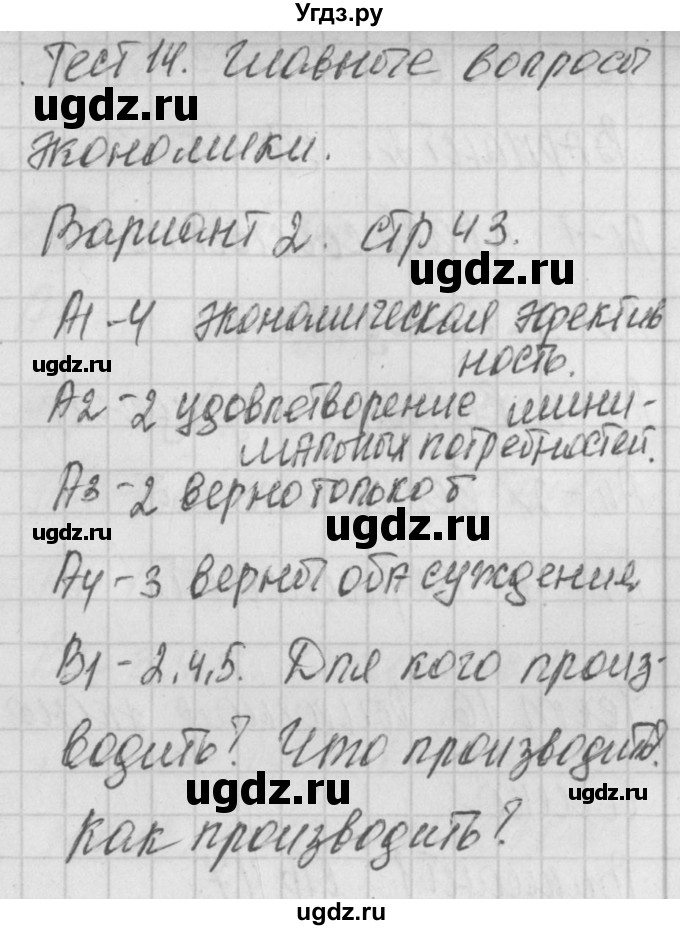 Угдз.ру
Тест 14. Главные вопросы
ugdz.ru
экономики.
Вариант 2. стр 43.
ugdz.ru
А1-4 экономическая эфектив
ность.
ugdz.ru
А2-2 удовлетворение мини-
мальных потребностей.
А3-2 верно только б
ugdz.ru
ugdz.ru
А4-3 верны оба суждения
В1-2,4,5. Для кого произ-
водить? Что производить?
ugdz.ru
как производить?
ugdz.ru